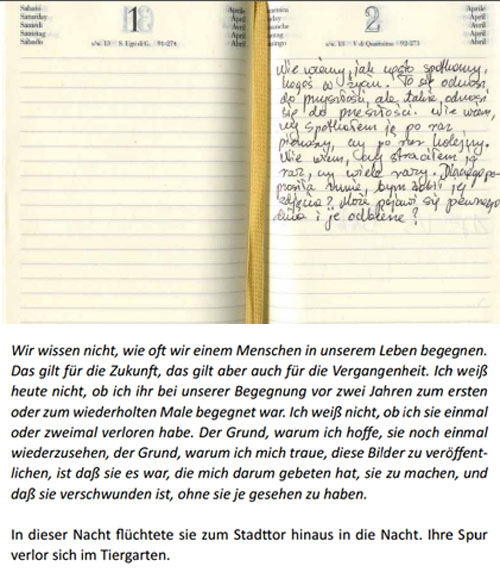 Sabato
Saturday
Samedi
Samstag
Sábado
1
Aprile
April
Avril
April
Abril
13 S. Ugo di G. 91-274
2
Aprile
April
Avril
April
Abril
13 V di Quaresima 92-273
Nie wiemy, jak często spotkamy
kogoś w życiu. To się odnosi
do przyszłości, ale także odnosi
się do przeszłości. Nie wiem,
czy spotkałem ją po raz
pierwszy, czy po raz kolejny.
Nie wiem, czy straciłem ją
raz, czy wiele razy. Dlaczego po-
prosiła mnie, bym zrobił jej
zdjęcia? Może pojawi się pewnego
dnia i je odbierze?
Wir wissen nicht, wie oft wir einem Menschen in unserem Leben begegnen.
Das gilt für die Zukunft, das gilt aber auch für die Vergangenheit. Ich weiß
heute nicht, ob ich ihr bei unserer Begegnung vor zwei Jahren zum ersten
oder zum wiederholten Male begegnet war. Ich weiß nicht, ob ich sie einmal
oder zweimal verloren habe. Der Grund, warum ich hoffe, sie noch einmal
wiederzusehen, der Grund, warum ich mich traue, diese Bilder zu veröffent-
lichen, ist daß sie es war, die mich darum gebeten hat, sie zu machen, und
daß sie verschwunden ist, ohne sie je gesehen zu haben.
In dieser Nacht flüchtete sie zum Stadttor hinaus in die Nacht. Ihre Spur
verlor sich im Tiergarten.